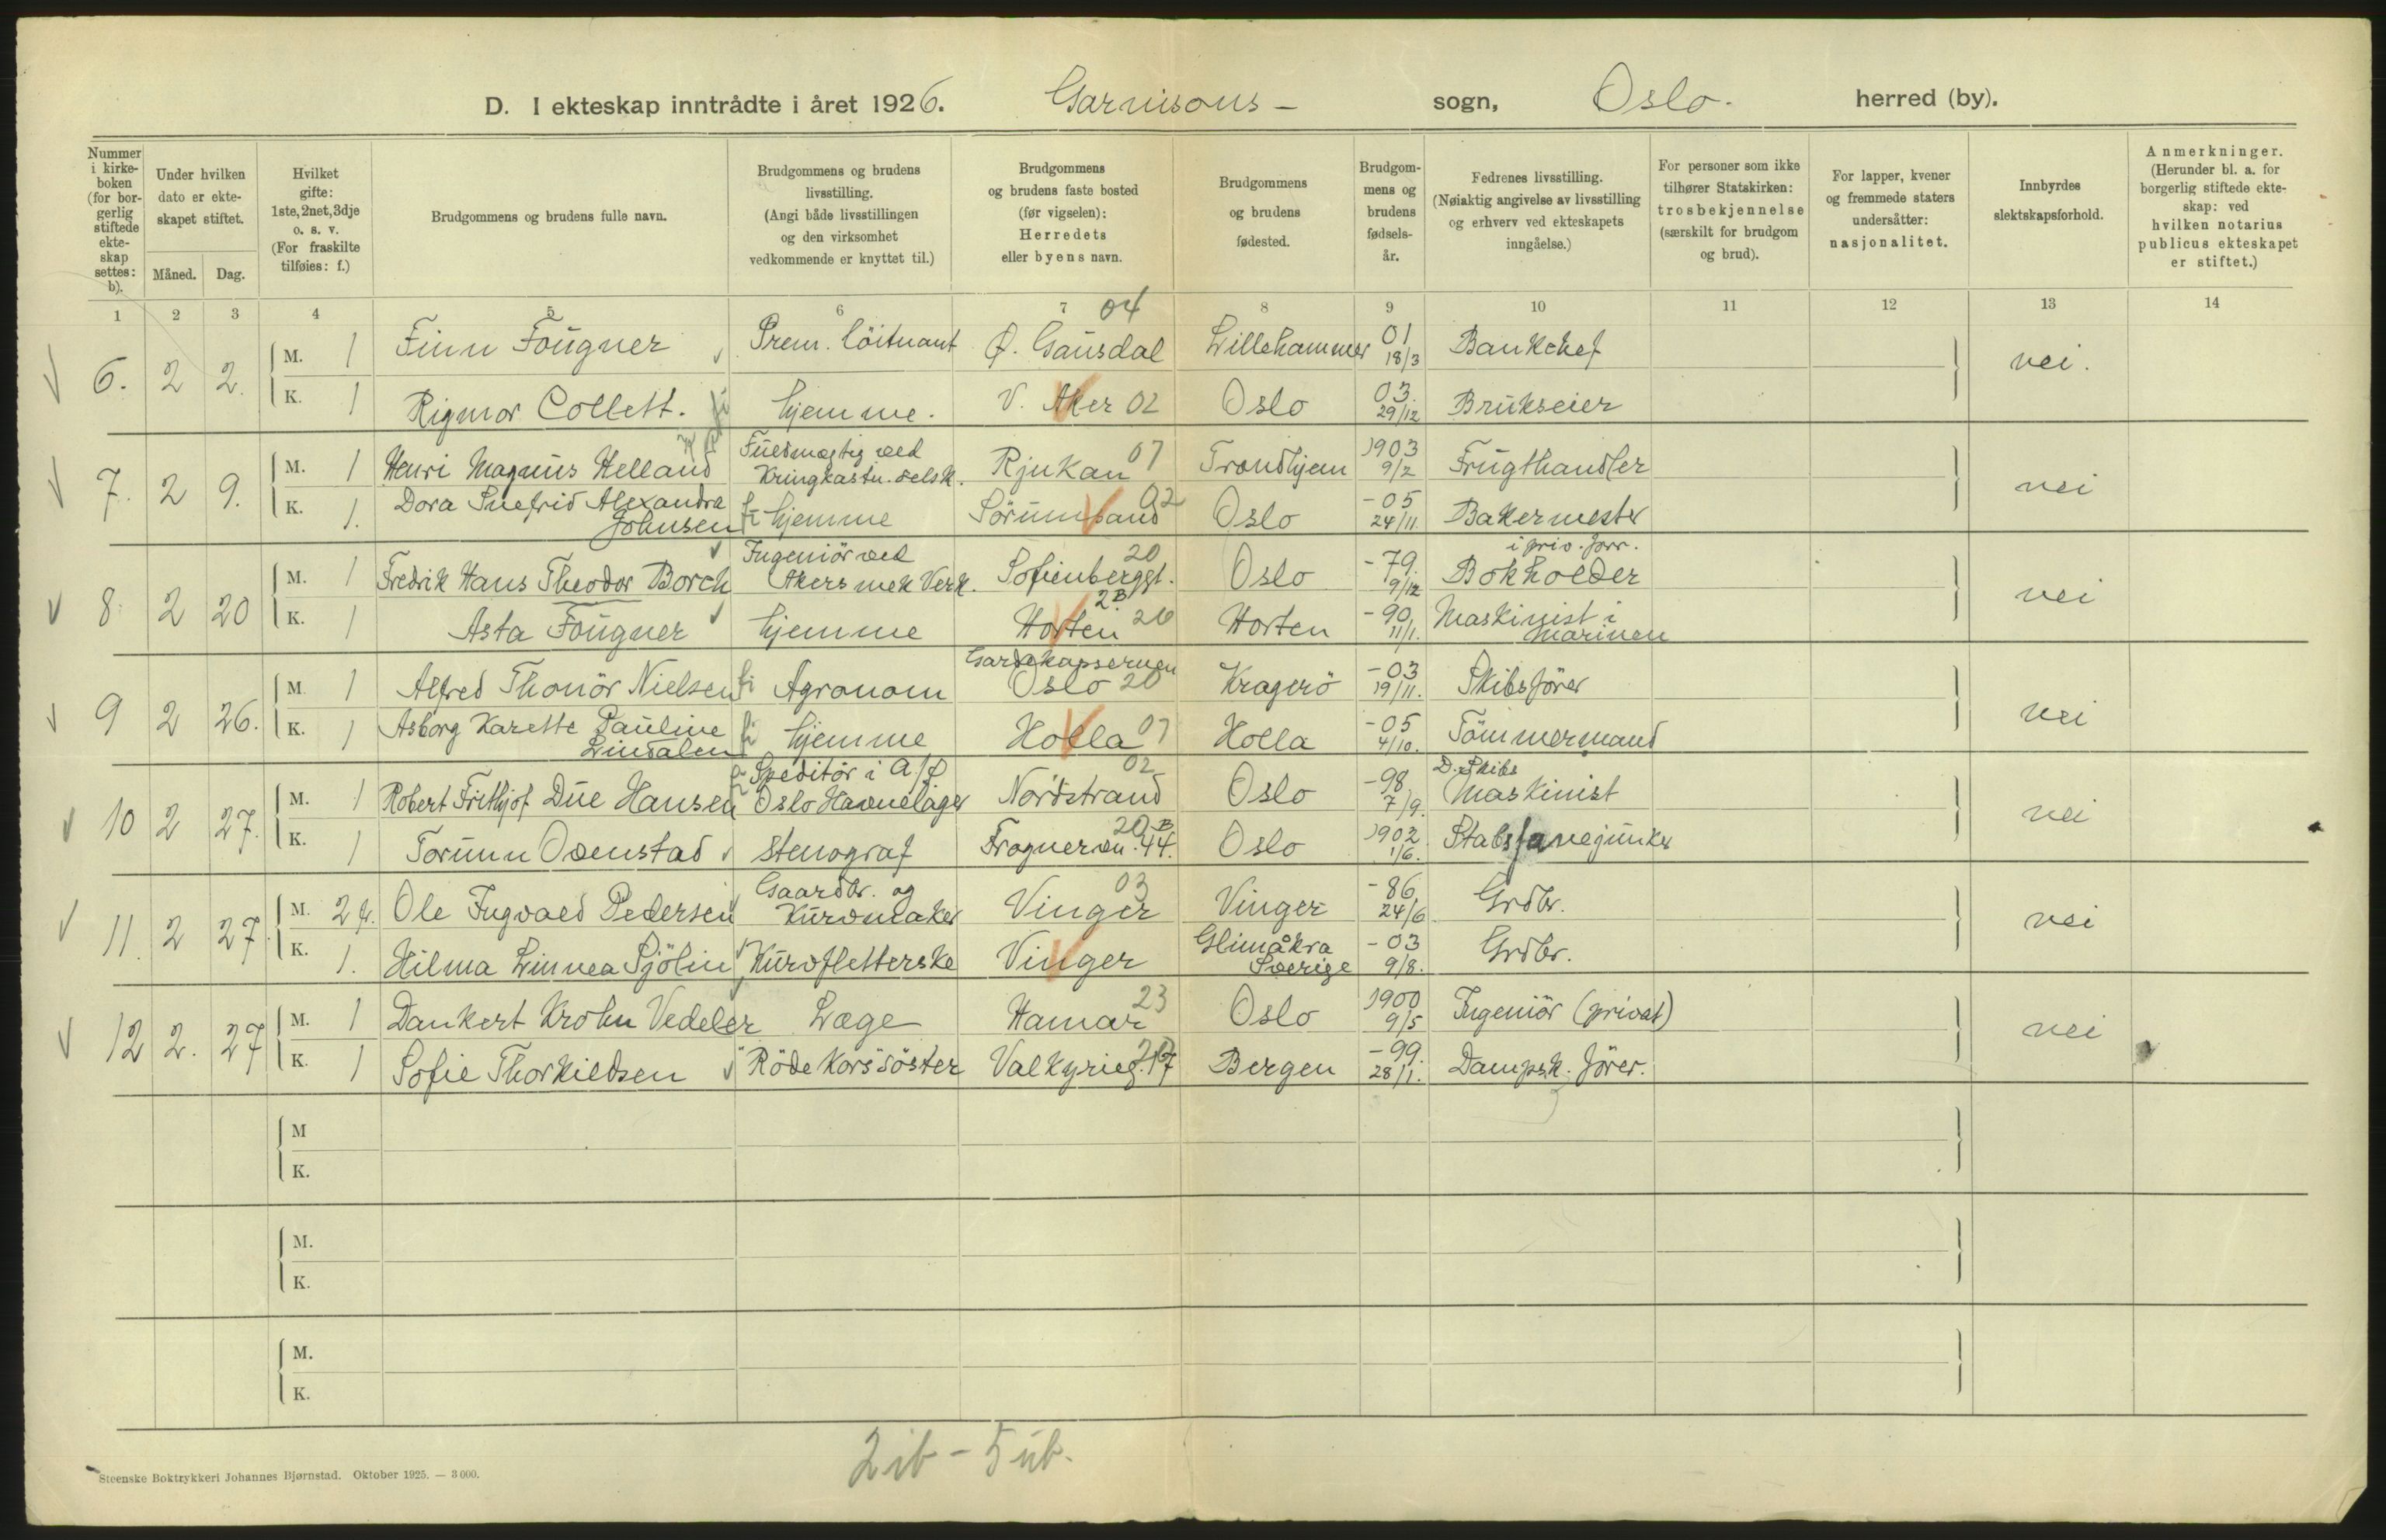 D. I ekteskap inntrådte i året 1926. Garnisons- sogn, Oslo. herred (by).
Nummer i kirke-boken (for bor-gerlig stiftede ekte-skap settes: b).
Under hvilken dato er ekte-skapet stiftet.
Måned. Dag.
Hvilket gifte: 1ste, 2net, 3dje o. s. v. (For fraskilte tilføies: f.)
Brudgommens og brudens fulle navn.
Brudgommens og brudens livsstilling. (Angi både livsstillingen og den virksomhet vedkommende er knyttet til.)
Brudgommens og brudens faste bosted (før vigselen): Herredets eller byens navn.
Brudgommens og brudens fødested.
Brudgom-mens og brudens fødsels-år.
Fedrenes livsstilling. (Nøiaktig angivelse av livsstilling og erhverv ved ekteskapets inngåelse.)
For personer som ikke tilhører Statskirken: trosbekjennelse (særskilt for brudgom og brud).
For lapper, kvener og fremmede staters undersåtter: nasjonalitet.
Innbyrdes slektskapsforhold.
Anmerkninger. (Herunder bl. a. for borgerlig stiftede ekte-skap: ved hvilken notarius publicus ekteskapet er stiftet.)
1 2 3 4 5 6 7 8 9 10 11 12 13 14
6. 2 2. M. 1 Finn Fougner Prem. löitnant Ø. Gausdal 04 Lillehammer 01 18/3 Bankchef nei.
K. 1 Rigmor Collett. hjemme. V. Aker 02 Oslo 03. 29/12 Brukseier
7. 2 9. M. 1 Henri Magnus Helland Fuldmægtig ved Kringkastn. selsk. Rjukan 07 Trondhjem 1903 9/2 Frugthandler nei
K. 1. Dora Snefrid Alexandra Johnsen hjemme Sörumsand 02 Oslo -05 24/11. Bakermester
8. 2 20 M. 1 Fredrik Hans Theodor Borch Ingeniör ved Akers mek Verk. Sofienberggt. 2B. 20 Oslo -79. 9/12 Bokholder i priv. forr. nei
K. 1 Asta Fougner hjemme Horten 20 Horten -90 11/1. Maskinist i marinen
9 2 26. M. 1 Alfred Thonör Nielsen fi Agronom Gardekasernen Oslo 20 Kragerö -03 19/11. Skibsförer nei
K. 1 Asborg Karette Pauline Lindalen fi hjemme Holla 07 Holla -05 4/10. Tömmermand
10 2 27. M. 1 Robert Frithjof Due Hansen Speditör i A/S Oslo Havnelager Nordstrand 02 Oslo -98 7/9. D. Skibs Maskinist nei
K. 1 Torunn Ovenstad stenograf Frognervn. 44. B 20 Oslo 1902 1/6. Stabsfanejunker
11. 2 27. M. 2 f. Ole Ingvald Pedersen Gaardbr. og Kurvmaker Vinger 03 Vinger -86 24/6 Grdbr. nei
K. 1. Hilma Linnea Sjölin Kurvfletterske Vinger Glimåkra Sverige -03 9/8. Grdbr.
12 2. 27 M. 1 Dankert Krohn Vedeler Læge Hamar 23 Oslo 1900 9/5 Ingeniör (privat) nei
K. 1 Sofie Thorkildsen Röde Korssöster Valkyrieg. 17 20 Bergen -99. 28/1. Dampsk. förer.
M
K.
M.
K.
M.
K.
2 ib - 5 ub.
Steenske Boktrykkeri Johannes Bjørnstad. Oktober 1925. — 3000.